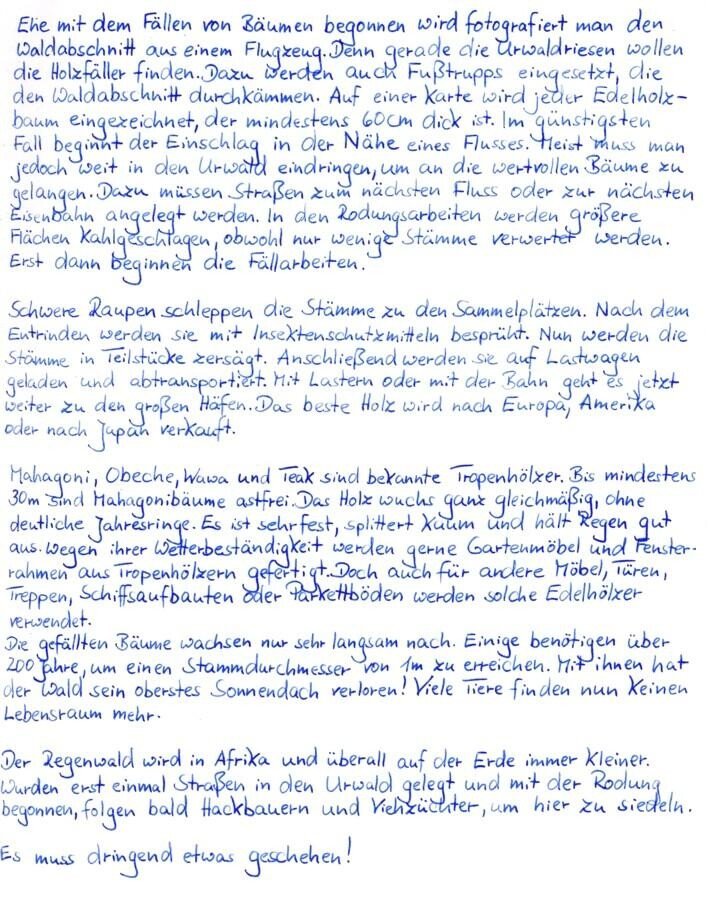 Ehe mit dem Fällen von Bäumen begonnen wird fotografiert man den
Waldabschnitt aus einem Flugzeug. Denn gerade die Urwaldriesen wollen
die Holzfäller finden. Dazu werden auch Fußtrupps eingesetzt, die
den Waldabschnitt durchkämmen. Auf einer Karte wird jeder Edelholz-
baum eingezeichnet, der mindestens 60cm dick ist. Im günstigsten
Fall beginnt der Einschlag in der Nähe eines Flusses. Meist muss man
jedoch weit in den Urwald eindringen, um an die wertvollen Bäume zu
gelangen. Dazu müssen Straßen zum nächsten Fluss oder zur nächsten
Eisenbahn angelegt werden. In den Rodungsarbeiten werden größere
Flächen kahlgeschlagen, obwohl nur wenige Stämme verwertet werden.
Erst dann beginnen die Fällarbeiten.
Schwere Raupen schleppen die Stämme zu den Sammelplätzen. Nach dem
Entrinden werden sie mit Insektenschutzmitteln besprüht. Nun werden die
Stämme in Teilstücke zersägt. Anschließend werden sie auf Lastwagen
geladen und abtransportiert. Mit Lastern oder mit der Bahn geht es jetzt
weiter zu den großen Häfen. Das beste Holz wird nach Europa, Amerika
oder nach Japan verkauft.
Mahagoni, Obeche, Wawa und Teak sind bekannte Tropenhölzer. Bis mindestens
30m sind Mahagonibäume astfrei. Das Holz wuchs ganz gleichmäßig, ohne
deutliche Jahresringe. Es ist sehr fest, splittert kaum und hält Regen gut
aus. Wegen ihrer Wetterbeständigkeit werden gerne Gartenmöbel und Fenster-
rahmen aus Tropenhölzern gefertigt. Doch auch für andere Möbel, Türen,
Treppen, Schiffsaufbauten oder Parkettböden werden solche Edelhölzer
verwendet.
Die gefällten Bäume wachsen nur sehr langsam nach. Einige benötigen über
200 Jahre, um einen Stammdurchmesser von 1m zu erreichen. Mit ihnen hat
der Wald sein oberstes Sonnendach verloren! Viele Tiere finden nun keinen
Lebensraum mehr.
Der Regenwald wird in Afrika und überall auf der Erde immer kleiner.
Wurden erst einmal Straßen in den Urwald gelegt und mit der Rodung
begonnen, folgen bald Hackbauern und Viehzüchter, um hier zu siedeln.
Es muss dringend etwas geschehen!